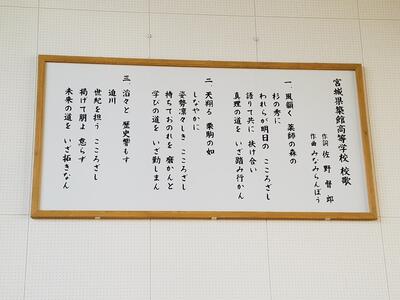 宮城県築館高等学校 校歌
作詞 佐野 督郎
作曲 みなみらんぼう
一、風韻く 薬師の森の
杉の秀に
われらが明日の こころざし
語りて共に 扶け合い
真理の道を いざ踏み行かん
二、天翔る 栗駒の如
しなやかに
姿勢凛々しき こころざし
持ちておのれを 磨かんと
学びの道を いざ勤しまん
三、滔々と 歴史響もす
迫川
世紀を担う こころざし
掲げて朋よ 怠らず
未来の道を いざ拓きなん